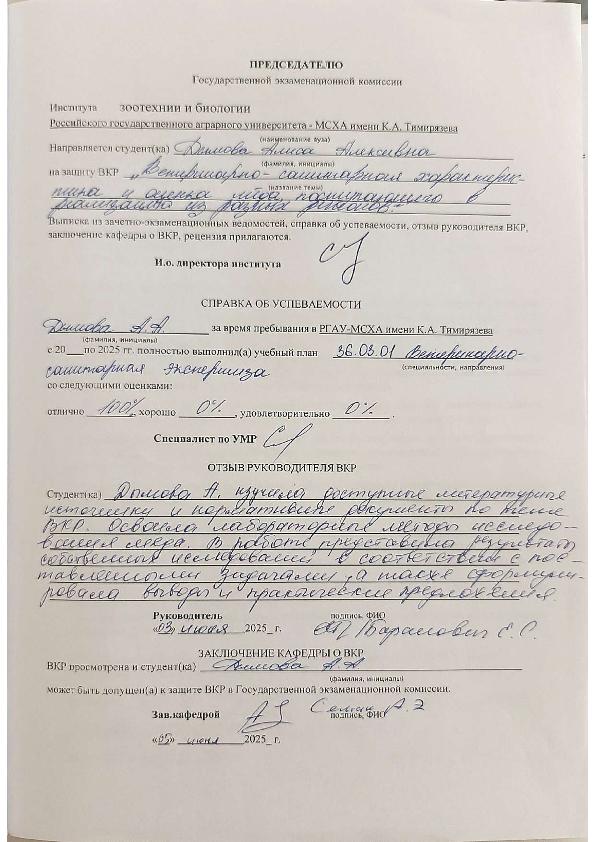 ПРЕДСЕДАТЕЛЮ
Государственной экзаменационной комиссии
Института зоотехнии и биологии
Российского государственного аграрного университета - МСХА имени К.А. Тимирязева
(наименование вуза)
Направляется студент(ка) Дымова Алиса Алексеевна
(фамилия, инициалы)
на защиту ВКР „Ветеринарно-санитарная характерис-
(название темы)
тика и оценка мёда, поступающего в
реализацию из разных регионов."
Выписка из зачетно-экзаменационных ведомостей, справка об успеваемости, отзыв руководителя ВКР,
заключение кафедры о ВКР, рецензия прилагаются.
И.о. директора института
СПРАВКА ОБ УСПЕВАЕМОСТИ
Дымова А.А. за время пребывания в РГАУ-МСХА имени К.А. Тимирязева
(фамилия, инициалы)
с 20___по 2025 гг. полностью выполнил(а) учебный план 36.03.01 Ветеринарно-
(специальности, направления)
санитарная экспертиза
со следующими оценками:
отлично 100%, хорошо 0%, удовлетворительно 0%.
Специалист по УМР
ОТЗЫВ РУКОВОДИТЕЛЯ ВКР
Студент(ка) Дымова А. изучила доступные литературные
источники и нормативные документы по теме
ВКР. Освоила лабораторные методы исследо-
вания меда. В работе представила результаты
собственных исследований в соответствии с пос-
тавленными задачами, а также сформули-
ровала выводы и практические предложения.
Руководитель
подпись, ФИО
«03» июня 2025_ г. Баранович Е.С.
ЗАКЛЮЧЕНИЕ КАФЕДРЫ О ВКР
ВКР просмотрена и студент(ка) Дымова А.А.
(фамилия, инициалы)
может быть допущен(а) к защите ВКР в Государственной экзаменационной комиссии.
Зав.кафедрой
подпись, ФИО
«05» июня 2025_ г.